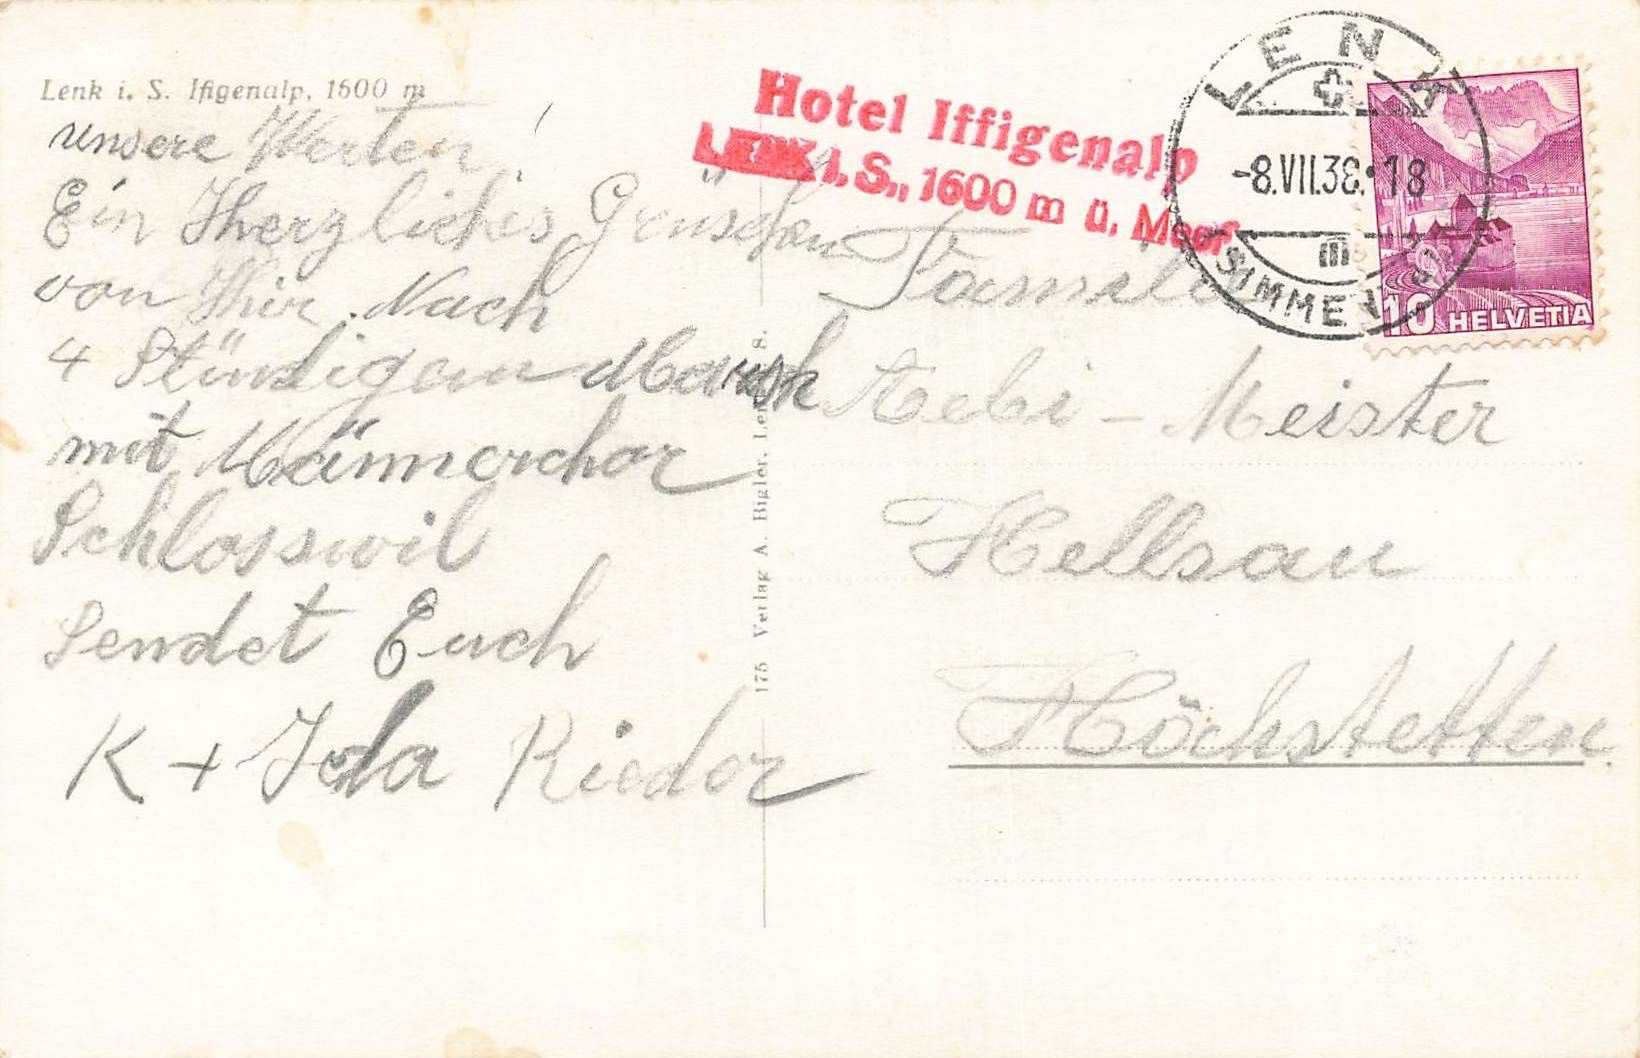 Lenk i. S. Ifigenalp, 1600 m
unsere Werten!
Ein Herzliches Grüschen
von Ihir. Nach
4 Stündigem Marsch
mit Männerchor
Schlosswil
Sendet Euch
K + Ida Rieder
175 Verlag A. Bigler, Lenk i. S.
Hotel Iffigenalp
LENK i. S., 1600 m ü. Meer
LENK
-8.VII.38.-18
III
10 HELVETIA
Familie
Aebi - Meister
Hellsau
Höchstetten.